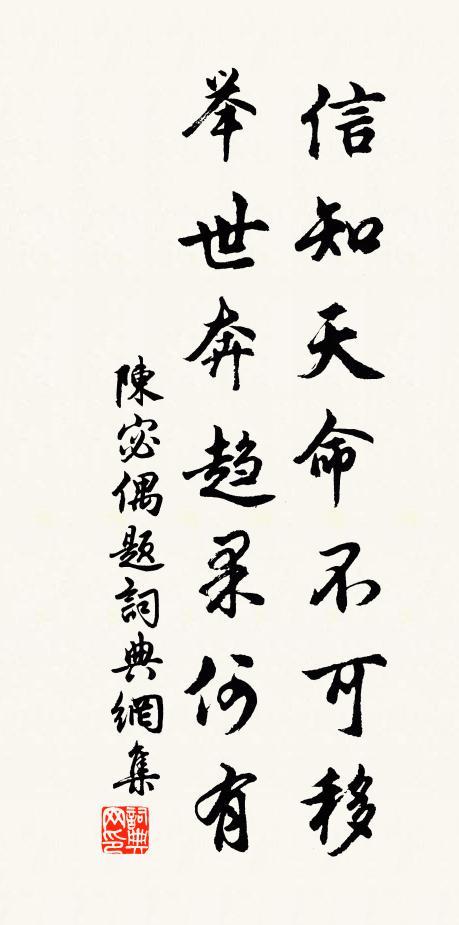 信知天命不可移
举世奔趋果何有
陳宓偶题詞典網集
詞典网印